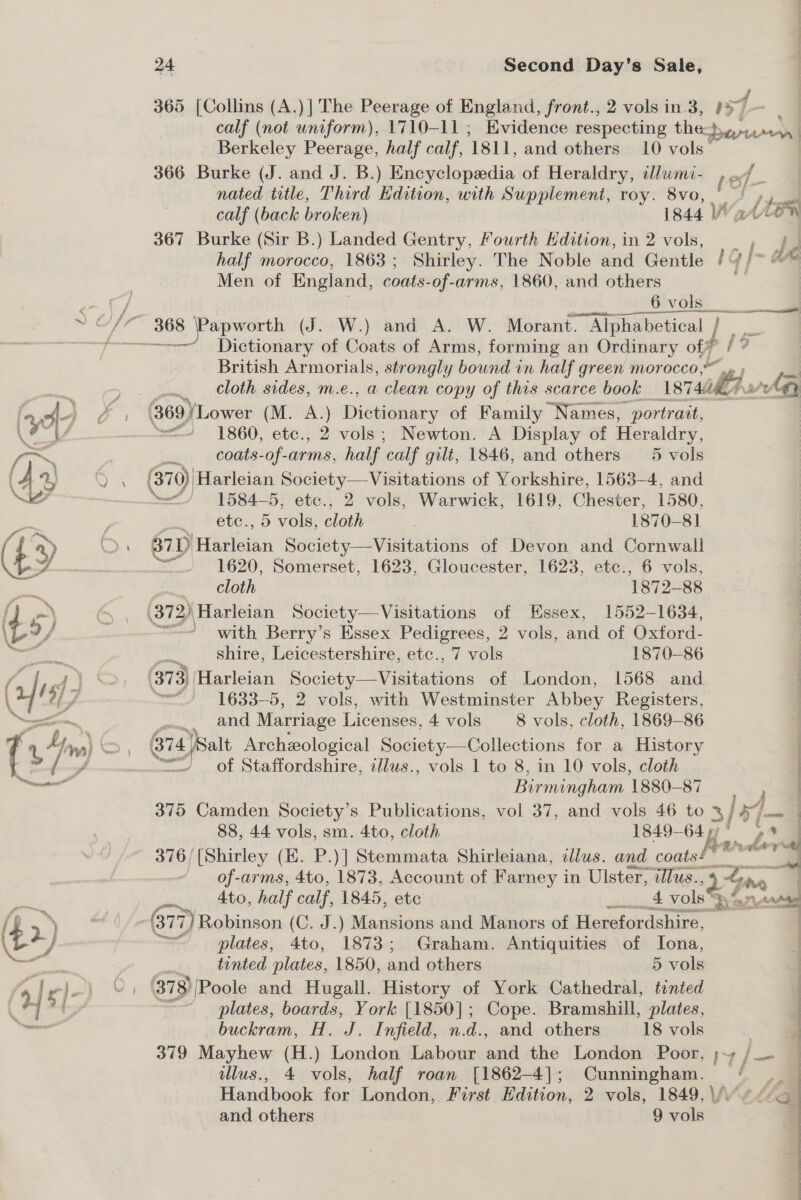 24 Second Day's Sale,
365 [Collins (A.)] The Peerage of England, front., 2 vols in 3,
calf (not uniform), 1710–11; Evidence respecting the
Berkeley Peerage, half calf, 1811, and others 10 vols
366 Burke (J. and J. B.) Encyclopædia of Heraldry, illumi-
nated title, Third Edition, with Supplement, roy. 8vo,
calf (back broken) 1844 Walton
367 Burke (Sir B.) Landed Gentry, Fourth Edition, in 2 vols,
half morocco, 1863; Shirley. The Noble and Gentle
Men of England, coats-of-arms, 1860, and others
6 vols
368 Papworth (J. W.) and A. W. Morant. Alphabetical
Dictionary of Coats of Arms, forming an Ordinary of
British Armorials, strongly bound in half green morocco,
cloth sides, m.e., a clean copy of this scarce book 1874
369 Lower (M. A.) Dictionary of Family Names, portrait,
1860, etc., 2 vols; Newton. A Display of Heraldry,
coats-of-arms, half calf gilt, 1846, and others 5 vols
370 Harleian Society—Visitations of Yorkshire, 1563–4, and
1584–5, etc., 2 vols, Warwick, 1619, Chester, 1580,
etc., 5 vols, cloth 1870–81
371 Harleian Society—Visitations of Devon and Cornwall
1620, Somerset, 1623, Gloucester, 1623, etc., 6 vols,
cloth 1872–88
372 Harleian Society—Visitations of Essex, 1552–1634,
with Berry's Essex Pedigrees, 2 vols, and of Oxford-
shire, Leicestershire, etc., 7 vols 1870–86
373 Harleian Society—Visitations of London, 1568 and
1633–5, 2 vols, with Westminster Abbey Registers,
and Marriage Licenses, 4 vols 8 vols, cloth, 1869–86
374 Salt Archæological Society—Collections for a History
of Staffordshire, illus., vols 1 to 8, in 10 vols, cloth
Birmingham 1880–87
375 Camden Society's Publications, vol 37, and vols 46 to
88, 44 vols, sm. 4to, cloth 1849–64
376 [Shirley (E. P.)] Stemmata Shirleiana, illus. and coats-
of-arms, 4to, 1873, Account of Farney in Ulster, illus.,
4to, half calf, 1845, etc 4 vols
377 Robinson (C. J.) Mansions and Manors of Herefordshire,
plates, 4to, 1873; Graham. Antiquities of Iona,
tinted plates, 1850, and others 5 vols
378 Poole and Hugall. History of York Cathedral, tinted
plates, boards, York [1850]; Cope. Bramshill, plates,
buckram, H. J. Infield, n.d., and others 18 vols
379 Mayhew (H.) London Labour and the London Poor,
illus., 4 vols, half roan [1862–4]; Cunningham.
Handbook for London, First Edition, 2 vols, 1849,
and others 9 vols